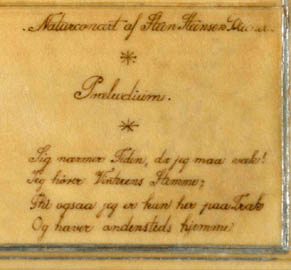 Naturconcert af Steen Steensen
*
Præludium.
*
Sig nærmer Tiden, da jeg maa væk!
Jeg hører Vinterens Stemme;
Thi ogsaa jeg er kun her paa Træk
Og haver andensteds hjemme.